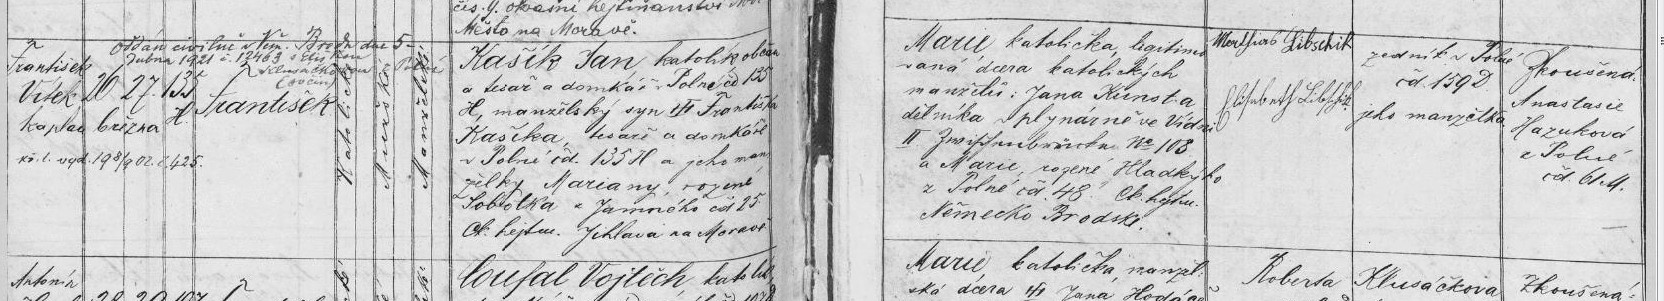 čes. g. okresní hejtmanství
Město na Moravě.
Oddán civilně v Něm. Brodě dne 5.
dubna 1921 č. 12463 s Eliškou
František
Vítek
kaplan
20 27. 135
března H.
František
kř. l. vyd. 19 8/9 02. č. 425.
Katolické
Mužské
Manželské
Kašík Jan katolík občan
a tesař a domkář v Polné čd 135
H, manželský syn Františka
Kašíka, tesaře a domkáře
v Polné čd. 135 H a jeho man
želky Mariany, rozené
Sobotka z Jamného čd 25
Ok. hejtm. Jihlava na Moravě
Marie katolička, legitimo
vaná dcera katolických
manželů: Jana Kunsta
dělníka v plynárně ve Vídni
II No 108
a Marie, rozené Hladkých
z Polné čd. 48. Ok. hejtm.
Německo Brodské.
Mathias Libschik
Elisabeth
zedník v Polné
čd. 159 D.
jeho manželka
Zkoušená.
Anastasie
Hazuková
z Polné
čd. 61 M.
Antonín
28 29 197
Coufal Vojtěch, katolík
Marie, katolička, manžel-
ská dcera Jana
Roberta Klusáčkova
Zkoušená: